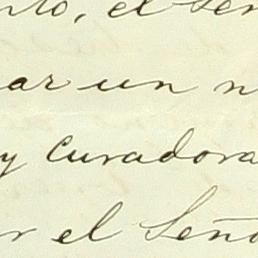 nto, el Señ
ar un n
y curadora
r el Seño